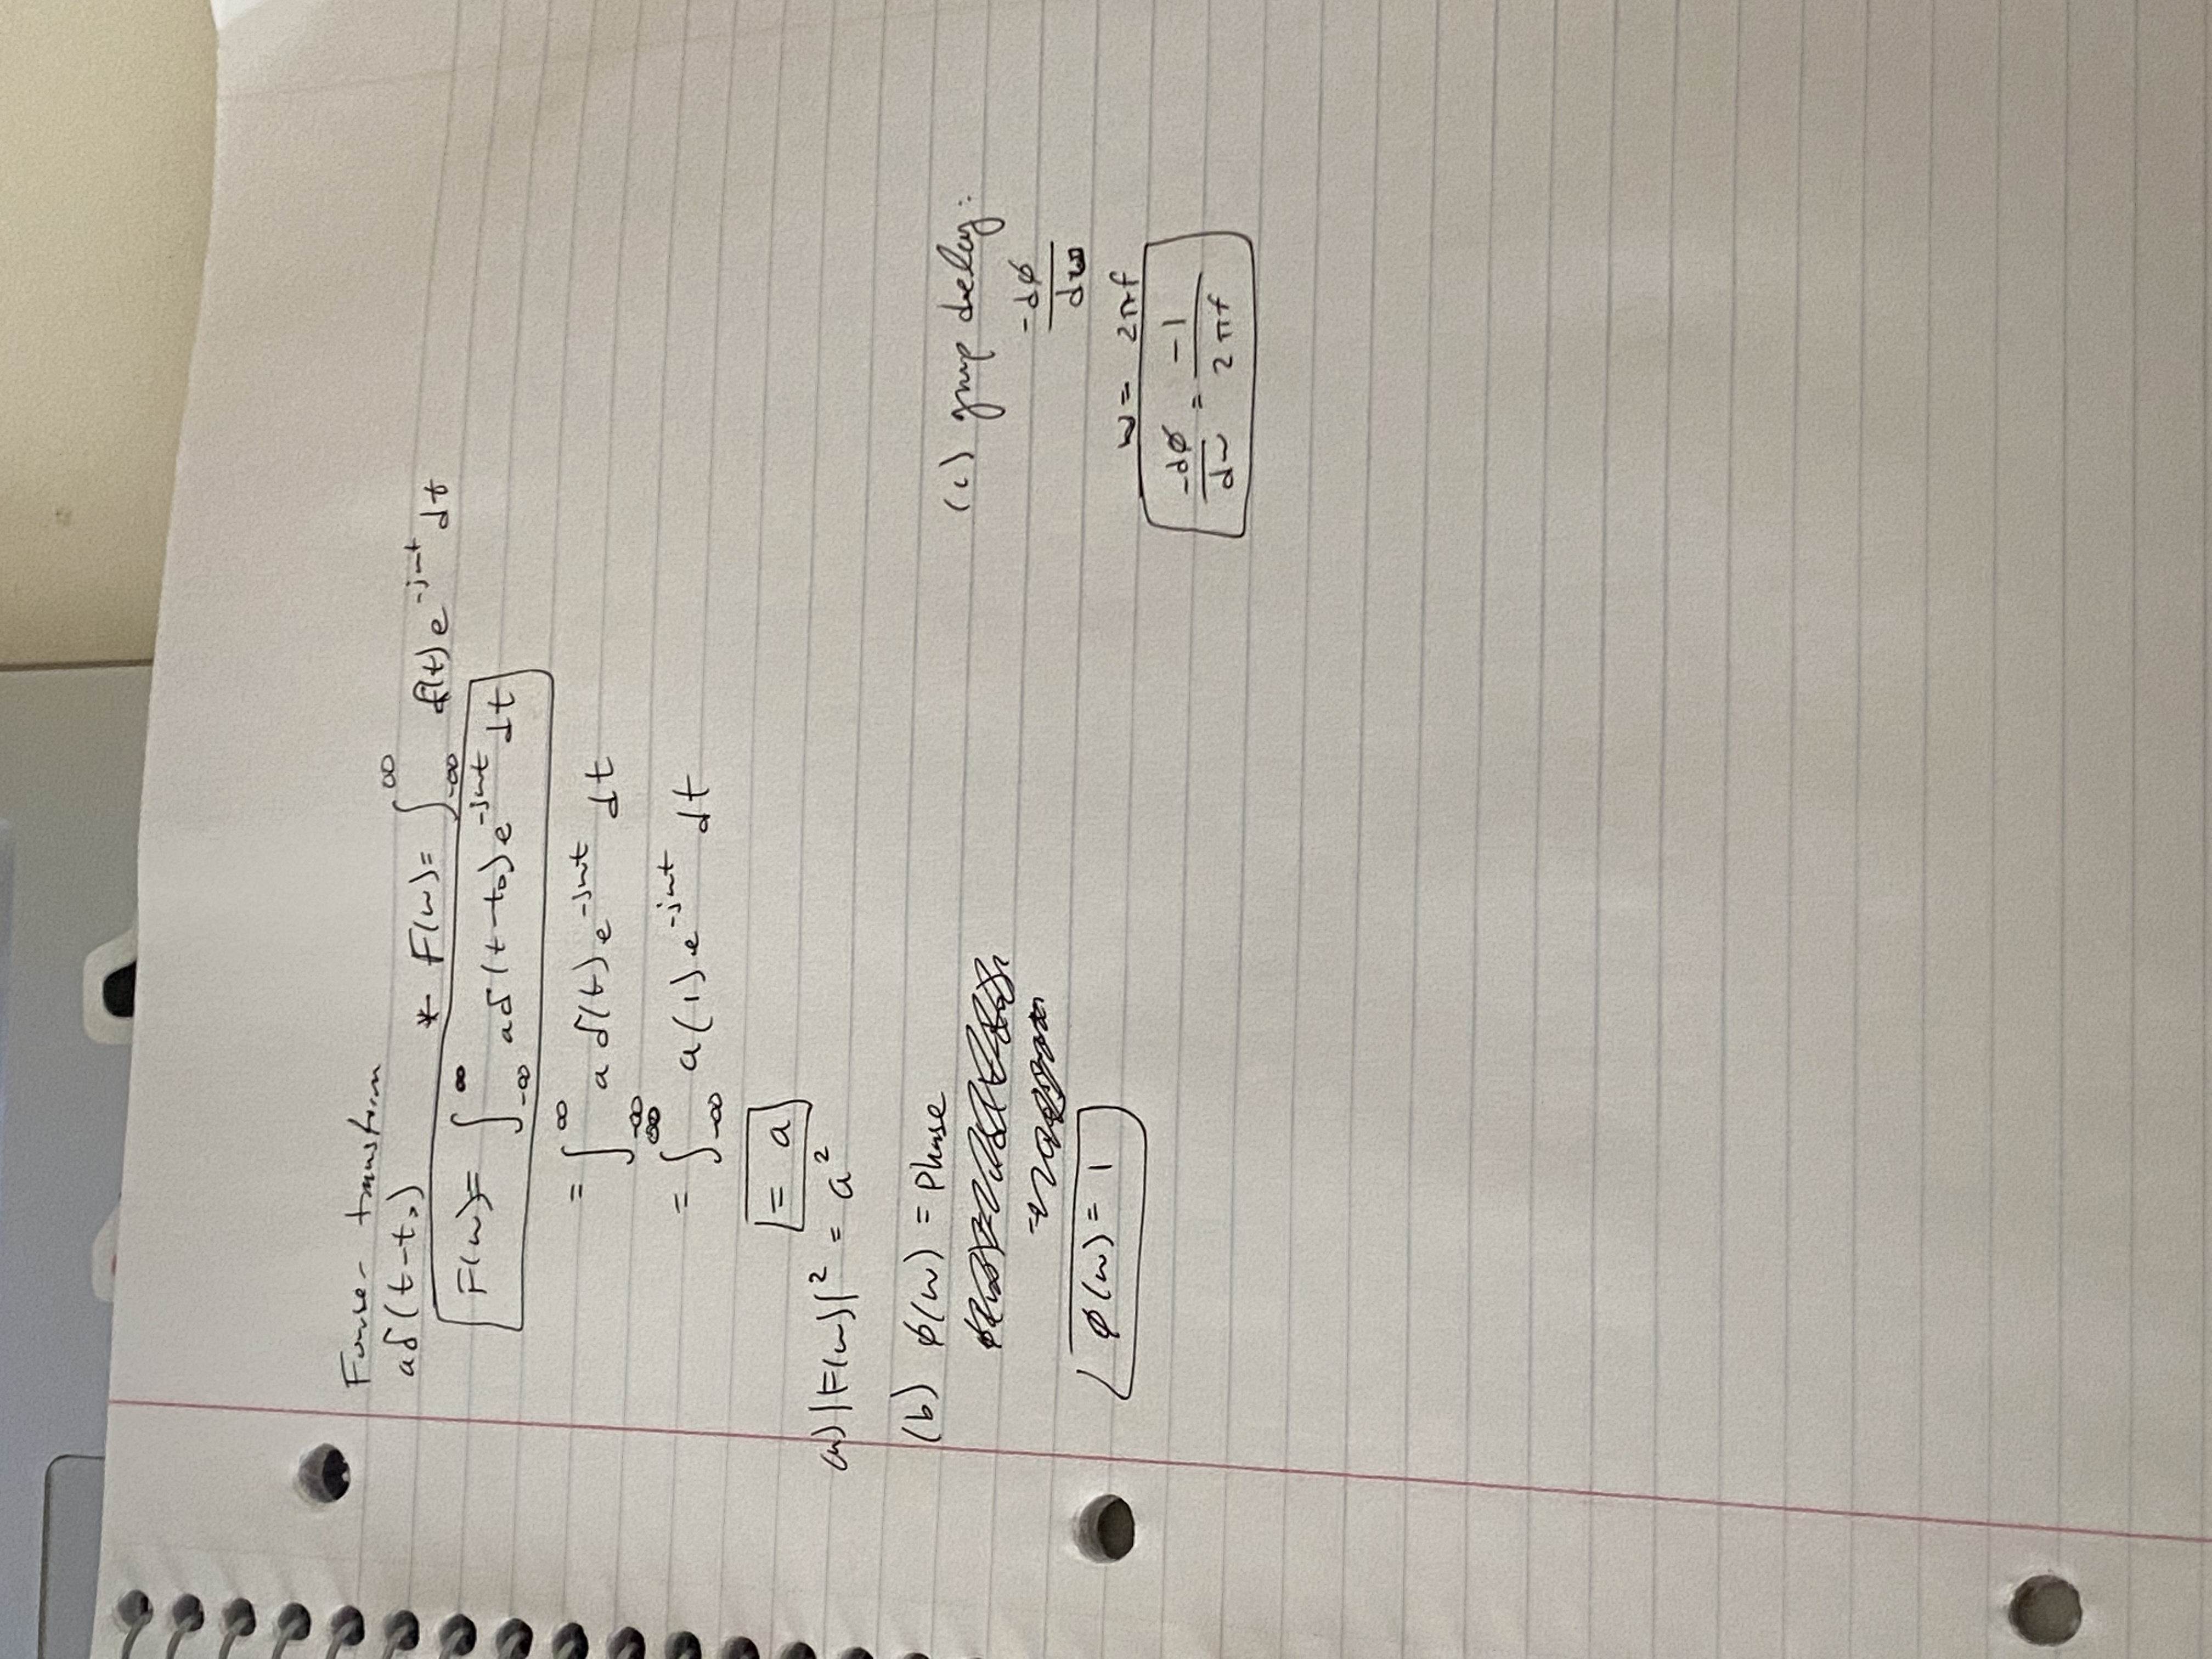 Fourier transform
aδ(t-t₀)
* F(ω)= ∫_{-∞}^{∞} f(t)e^{-jωt} dt
F(ω)= ∫_{-∞}^{∞} aδ(t-t₀)e^{-jωt} dt
= ∫_{-∞}^{∞} a δ(t)e^{-jωt} dt
= ∫_{-∞}^{∞} a(1)e^{-jωt} dt
= a
a) |F(ω)|² = a²
(b) φ(ω) = phase
φ(ω) = 1
(c) group delay:
-dφ/dω
ω = 2πf
-dφ/dω = -1/2πf